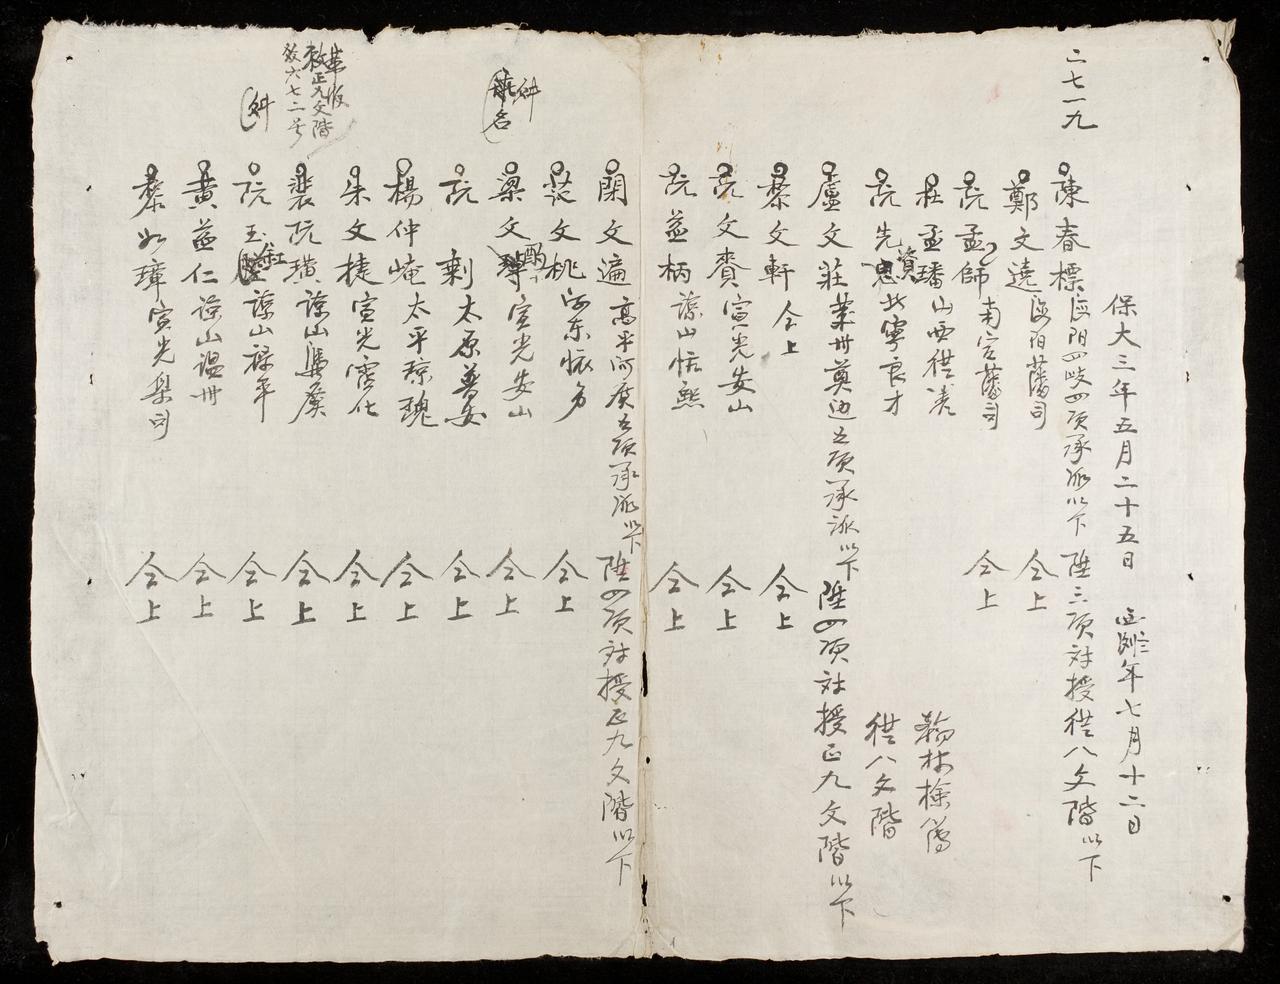 二七一九
保大三年五月二十五日 年七月十二日
陳春標 海阳四岐四項承派以下 陞三項對授從八文階以下
鄭文遶 海阳藩司 仝上
阮孟師 南定藩司 仝上
杜孟璠 山西從 翰林檢簿
阮先資 北寧良才 從八文階
盧文莊 莱州奠边五項承派以下 陞四項對授正九文階以下
黎文軒 仝上 仝上
阮文賚 宣光安山 仝上
阮益柄 諒山恬熙 仝上
閑文遍 高平河廣五項承派以下 陞四項對授正九文階以下
文桃 河东 仝上
梁文酌 宣光安山 仝上
阮剩 太原普安 仝上
楊仲崦 太平琼瑰 仝上
朱文捷 宣光霑化 仝上
裴阮璜 諒山 仝上
阮玉缸 諒山祿平 仝上
黄益仁 諒山温州 仝上
黎如璋 宣光梨司 仝上
名
正九文階
六七二号